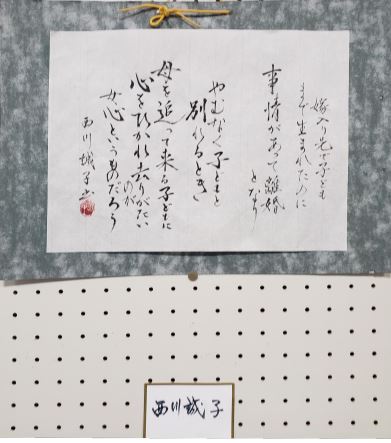 嫁入り先で子ども
まで生まれたのに
事情があって離婚
となり
やむなく子どもと
別れるとき
母を追って来る子どもに
心をひかれ去りがたい
のが
女心というものだろう
西川誠子書
西川誠子